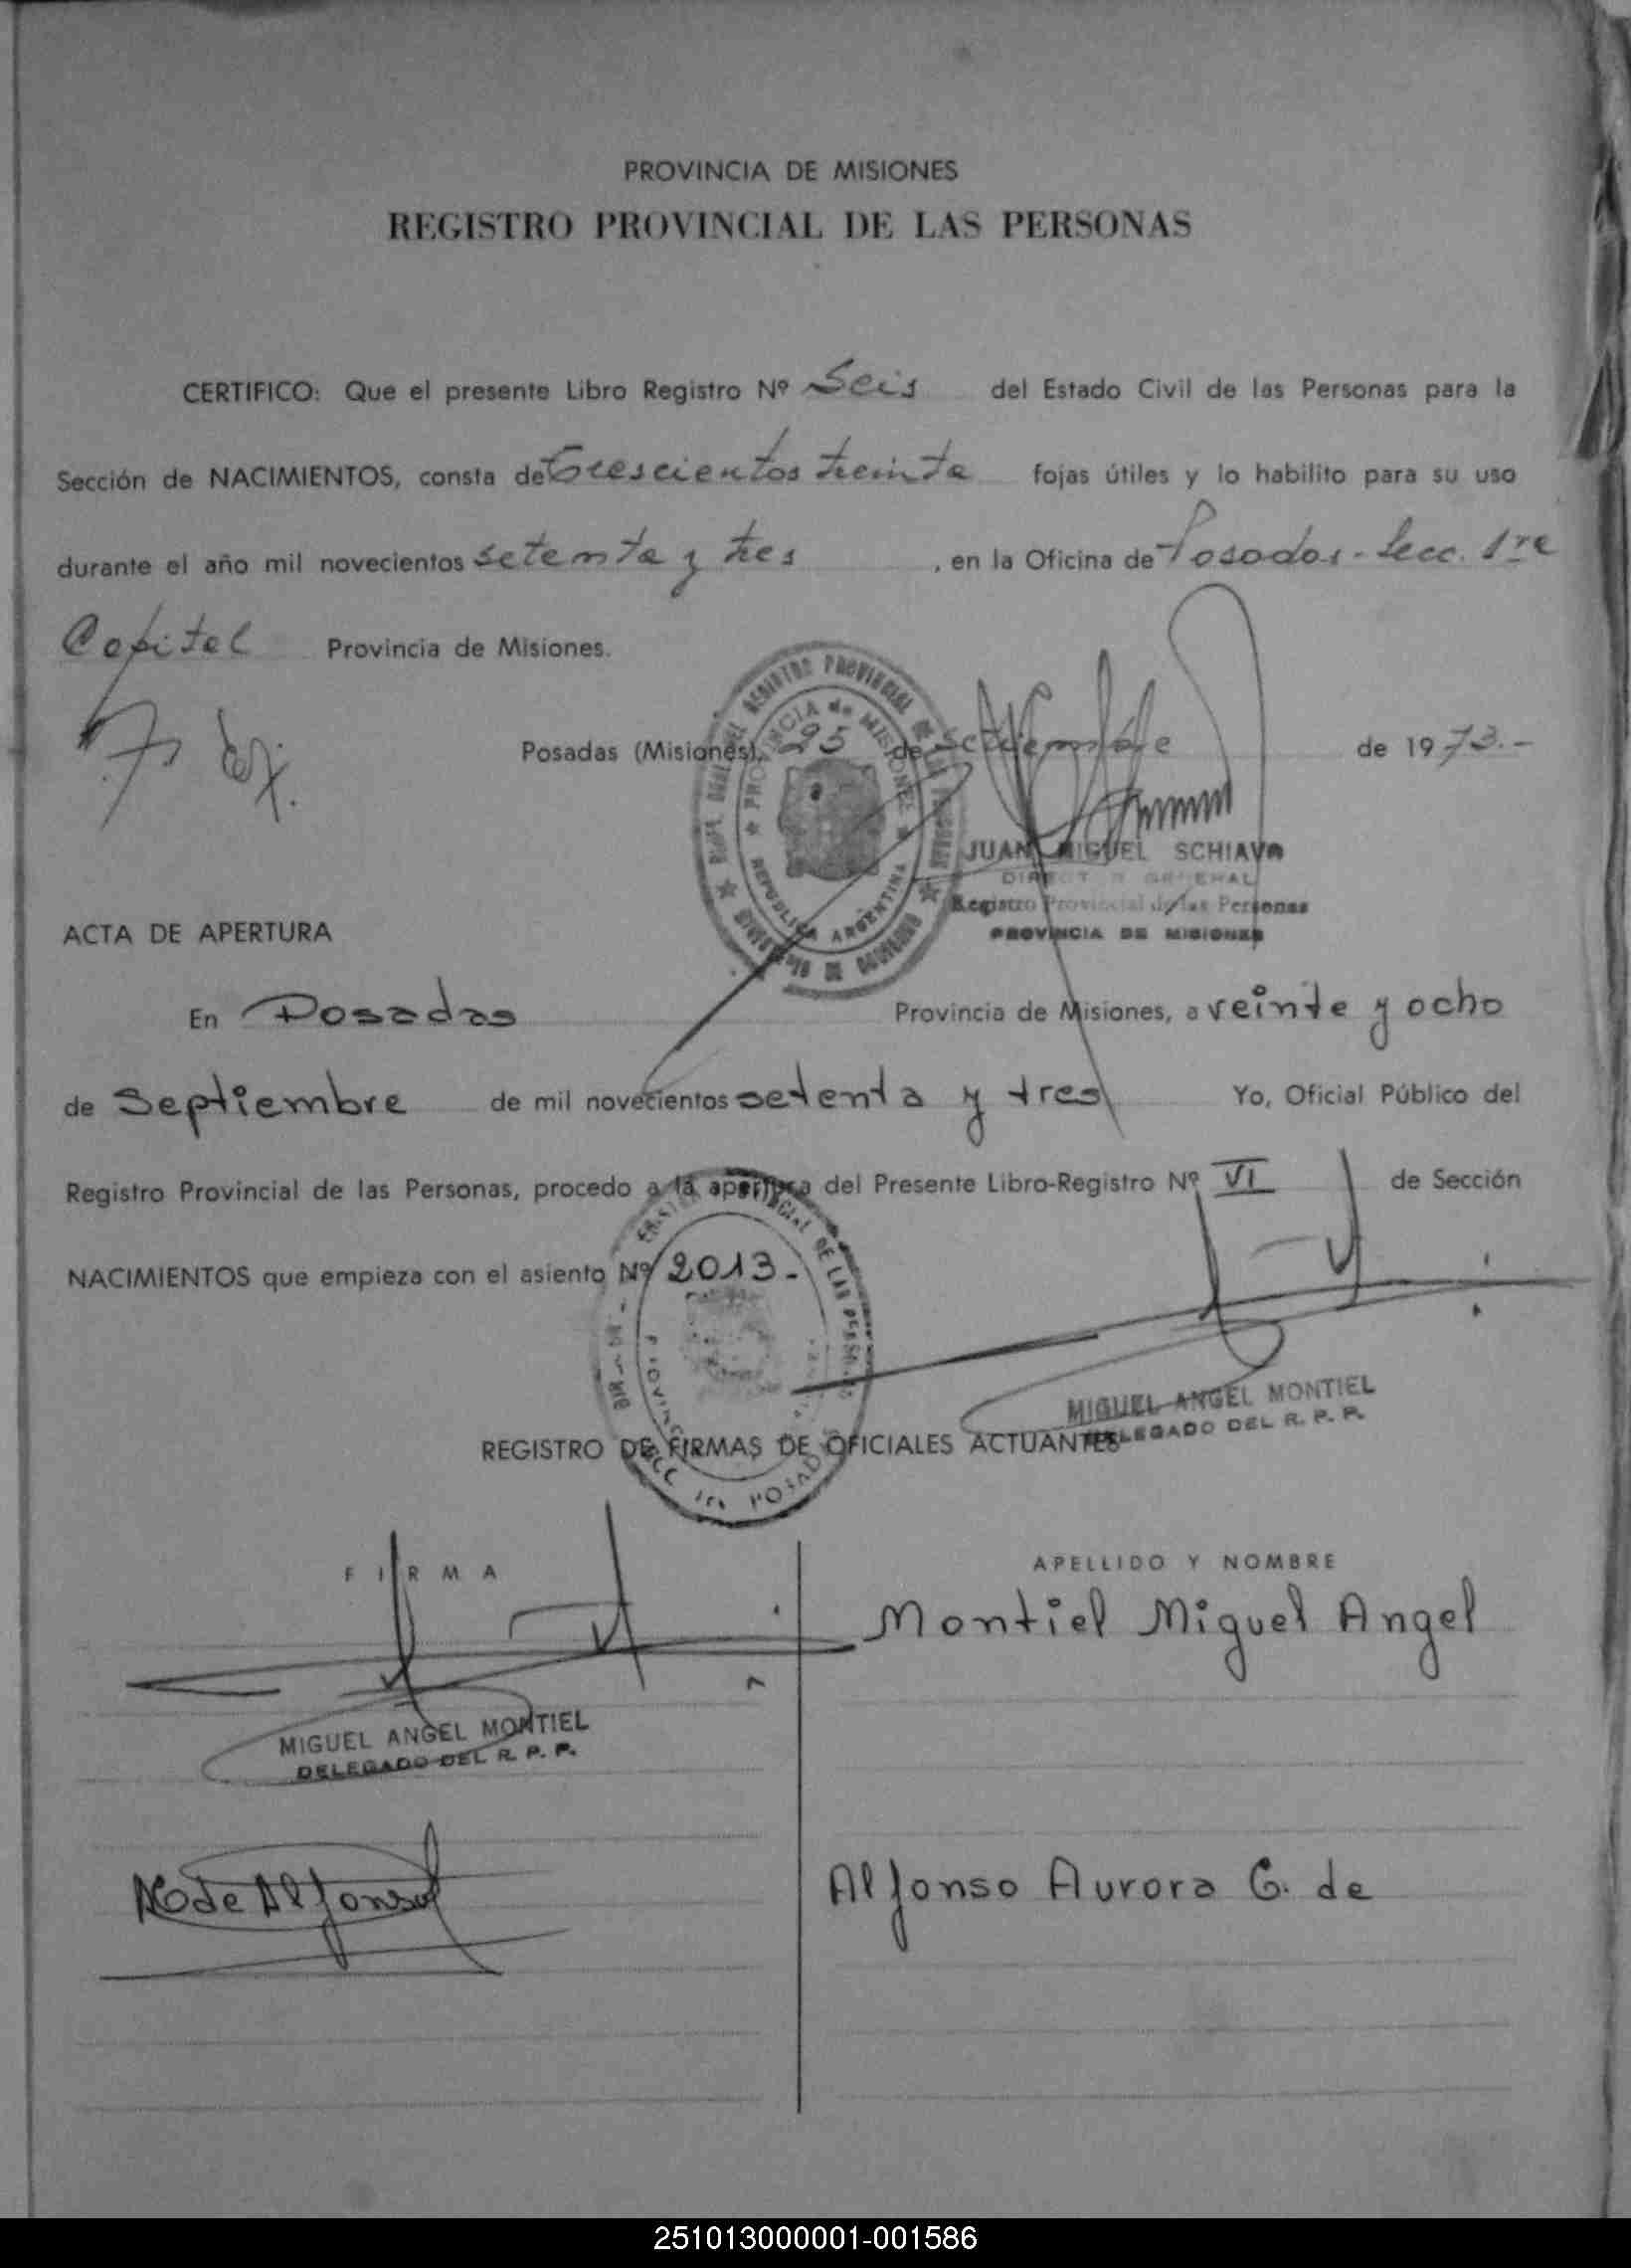 PROVINCIA DE MISIONES
REGISTRO PROVINCIAL DE LAS PERSONAS
CERTIFICO: Que el presente Libro Registro Nº Seis del Estado Civil de las Personas para la
Sección de NACIMIENTOS, consta de trescientos treinta fojas útiles y lo habilito para su uso
durante el año mil novecientos setenta y tres, en la Oficina de Posadas - Secc. 1ra
Capital Provincia de Misiones.
Posadas (Misiones), 25 de setiembre de 1973.-
JUAN MIGUEL SCHIAVA
DIRECTOR GENERAL
Registro Provincial de las Personas
PROVINCIA DE MISIONES
PROVINCIA de MISIONES
REPUBLICA ARGENTINA
ACTA DE APERTURA
En Posadas Provincia de Misiones, a veinte y ocho
de Septiembre de mil novecientos setenta y tres Yo, Oficial Público del
Registro Provincial de las Personas, procedo a la apertura del Presente Libro-Registro Nº VI de Sección
NACIMIENTOS que empieza con el asiento Nº 2013.-
MIGUEL ANGEL MONTIEL
DELEGADO DEL R. P. P.
REGISTRO DE FIRMAS DE OFICIALES ACTUANTES
FIRMA APELLIDO Y NOMBRE
Montiel Miguel Angel
MIGUEL ANGEL MONTIEL
DELEGADO DEL R. P. P.
de Alfonso Alfonso Aurora G. de
251013000001-001586